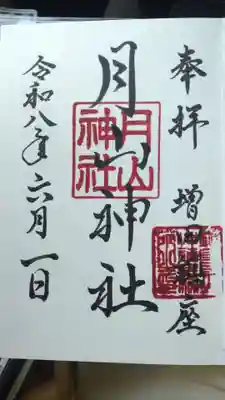 奉拝 増田鎮座
月山神社
月山
神社
令和八年六月一日